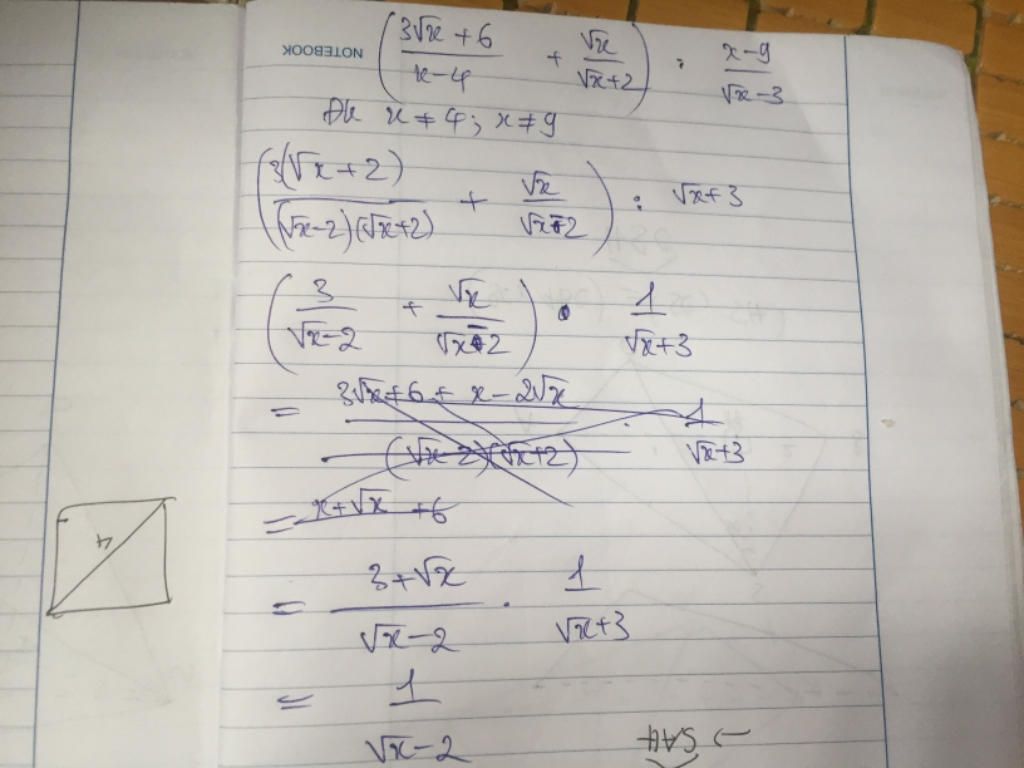 NOTEBOOK
(3√x + 6 / x - 4 + √x / √x + 2) : x - 9 / √x - 3
Đk x ≠ 4; x ≠ 9
(3(√x + 2) / (√x - 2)(√x + 2) + √x / √x - 2) : √x + 3
(3 / √x - 2 + √x / √x - 2) · 1 / √x + 3
= 3√x + 6 + x - 2√x / (√x - 2)(√x + 2) · 1 / √x + 3
= x + √x + 6
4
= 3 + √x / √x - 2 · 1 / √x + 3
= 1 / √x - 2
→ SAH